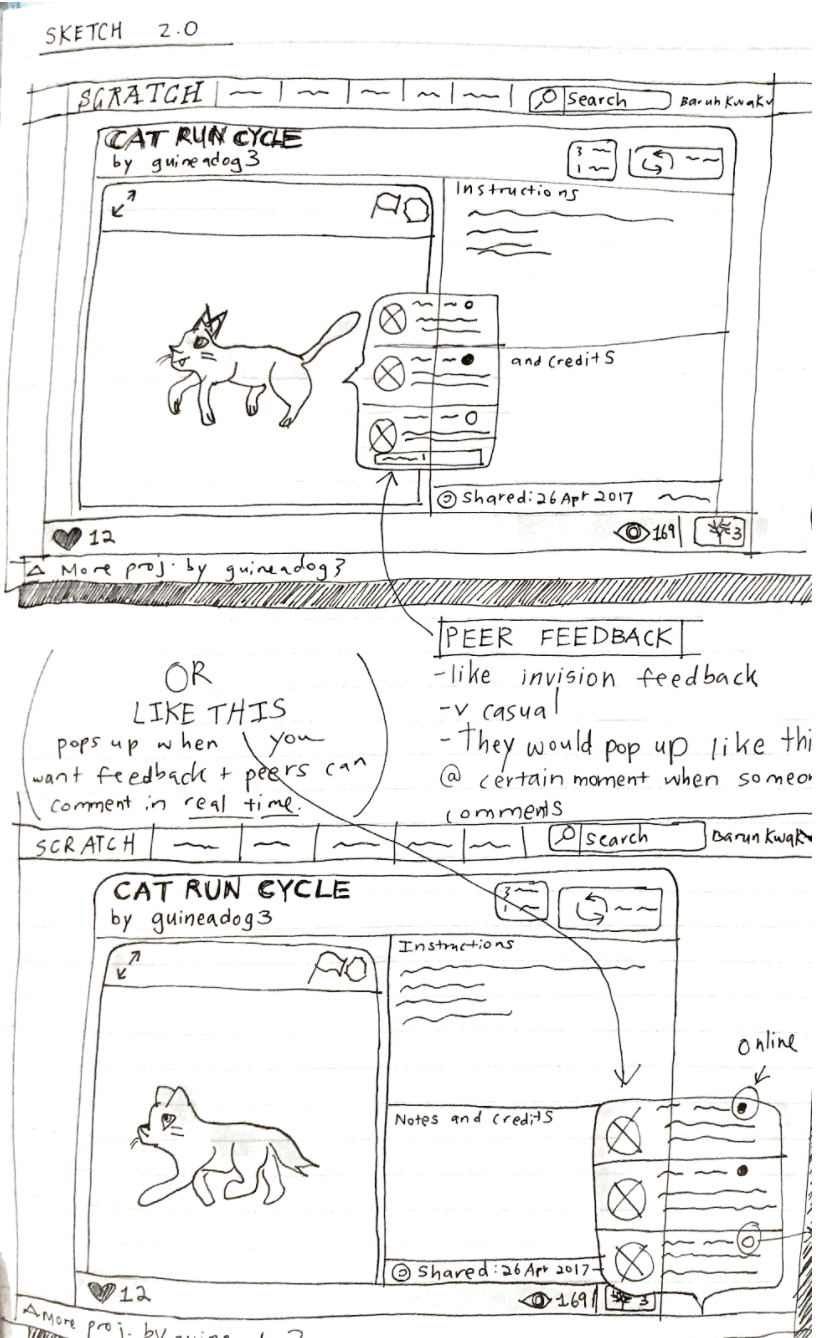 SKETCH 2.0
SCRATCH Search Barun Kwak
CAT RUN CYCLE
by guineadog3
3
1
Instructions
and credits
Shared: 26 Apr 2017
12 169 3
More proj. by guineadog3
PEER FEEDBACK
-like invision feedback
-v casual
-They would pop up like thi
@ certain moment when someon
comments
OR
LIKE THIS
pops up when you
want feedback + peers can
comment in real time.
SCRATCH Search Barun Kwak
CAT RUN CYCLE
by guineadog3
3
1
Instructions
online
Notes and credits
Shared: 26 Apr 2017
12 169 3
More proj. by